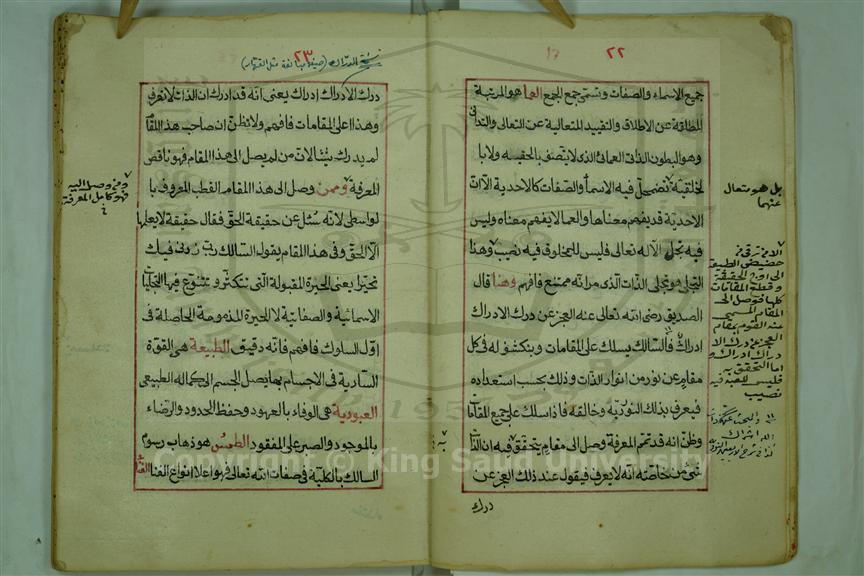 ٢٢
جميع الاسماء والصفات وتسمى جمع الجمع العما هو المرتبة
المطلقة عن الاطلاق والتقييد المتعالية عن التعالى والتدانى
وهو البطون الذات العمائى الذى لا يتصف بالحقيه ولا با
لخلقية تضمحل فيه الاسماء والصفات كالاحدية الا ان
الاحدية قد يفهم معناها والعما لا يفهم معناه وليس
فيه تجل الا له تعالى فليس للمخلوق فيه نصيب وهذا
التجلى هو تجلى الذات الذى مر انه ممتنع فافهم وهنا قال
الصديق رضى الله تعالى عنه العجز عن درك الادراك
ادراك فالسالك يسلك على المقامات وينكشف له فى كل
مقام عن نور من انوار الذات وذلك بحسب استعداده
فيعرف بذلك النور ربه وخالقه فاذا سلك على جميع المقامات
وظن انه قد تتم المعرفة وصل الى مقام يتحقق فيه ان الذات
شئ من خاصته انه لا يعرف فيقول عند ذلك العجز عن
درك
بل هو متعال
عنهما
الا من ترقى من
حضيض الطبيعة
الى اوج الحقيقة
وقطع المقامات
كلها فتوصل الى
المقام المسمى
عند القوم بمقام
العجز عن درك الا
دراك ادراك و
اما التحقق به
فليس للعبد فيه
نصيب
٢٣
درك الادراك ادراك يعنى انه قد ادرك ان الذات لا تعرف
وهذا اعلى المقامات فافهم ولا تظن ان صاحب هذا المقام
لم يدرك شيئا لان من لم يصل الى هذا المقام فهو ناقص
المعرفة وممن وصل الى هذا المقام القطب المعروف با
لواسطى لانه سئل عن حقيقة الحق فقال حقيقة لا يعلمها
الا الحق وفى هذا المقام يقول السالك رب زدنى فيك
تحيرا يعنى الحيرة المقبولة التى تتكثر وتتنوع فيها التجليات
الاسمائية والصفاتية لا الحيرة المذمومة الحاصلة فى
اول السلوك فافهم فانه دقيق الطبيعة هى القوة
السارية فى الاجسام بها يصل الجسم الى كماله الطبيعى
العبودية هى الوفاء بالعهود وحفظ الحدود والرضاء
بالموجود والصبر على المفقود الطمس هو ذهاب رسوم
السالك بالكلية فى صفات الله تعالى فهو اعلا انواع الفنا الفناء
ومن وصل اليه
فهو كامل المعرفة
Copyright © King Saud University
1957